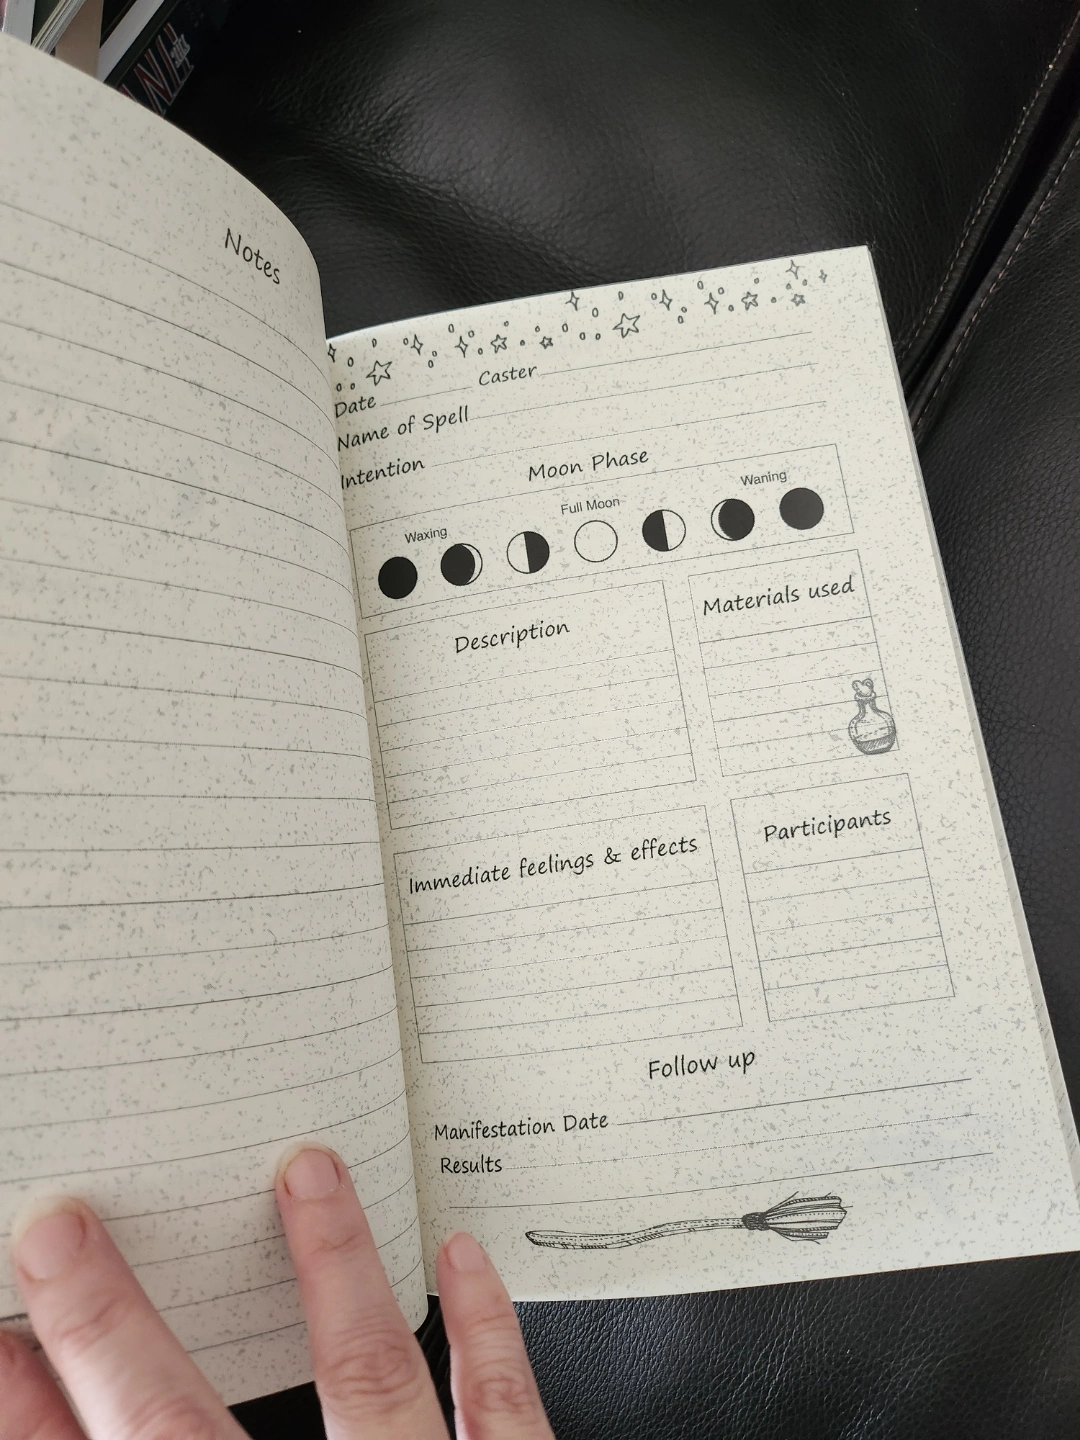 Notes
Date Caster
Name of Spell
Intention
Moon Phase
Waxing Full Moon Waning
Description
Materials used
Immediate feelings & effects
Participants
Follow up
Manifestation Date
Results